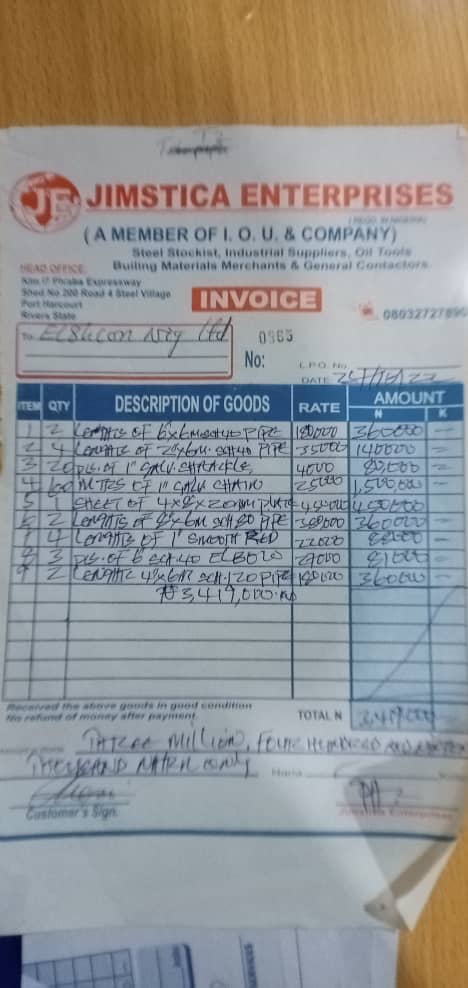 JE
JIMSTICA ENTERPRISES
(A MEMBER OF I. O. U. & COMPANY)
Steel Stockist, Industrial Suppliers, Oil Tools
Builing Materials Merchants & General Contactors.
HEAD OFFICE:
Km 17 Phcaba Expressway
Shed No 200 Road 4 Steel Village
Port Harcourt
Rivers State
INVOICE
0803272789
To Elshcon Nig Ltd
0365
No:
L.P.O. No.
DATE
ITEM QTY DESCRIPTION OF GOODS RATE AMOUNT
N K
1 2 Lengths of 6"x6m sch40 PIPE 180000 360000 —
2 4 Lengths of 2"x6m sch40 PIPE 35000 140000 —
3 20 pcs of 1" GALV. SHACKLE 4000 80,000 —
4 60 MTRS OF 1" GALV CHAIN 25000 1,500,000 —
5 1 SHEET OF 4x8x20mm PLATE 450000 450000 —
6 2 Lengths of 8"x6m sch80 PIPE 360000 —
7 4 Lengths of 1" Smooth ROD 22000 88000 —
8 3 pcs. of 6" sch.40 ELBOW 81000 —
9 2 Lengths 4"x6m sch.120 PIPE 180000 360000 —
₦3,419,000.00
Received the above goods in good condition
No refund of money after payment.
TOTAL N 3,419,000
Three Million, Four Hundred and
Thousand Naira only
Customer's Sign.
Jimstica Enterprises